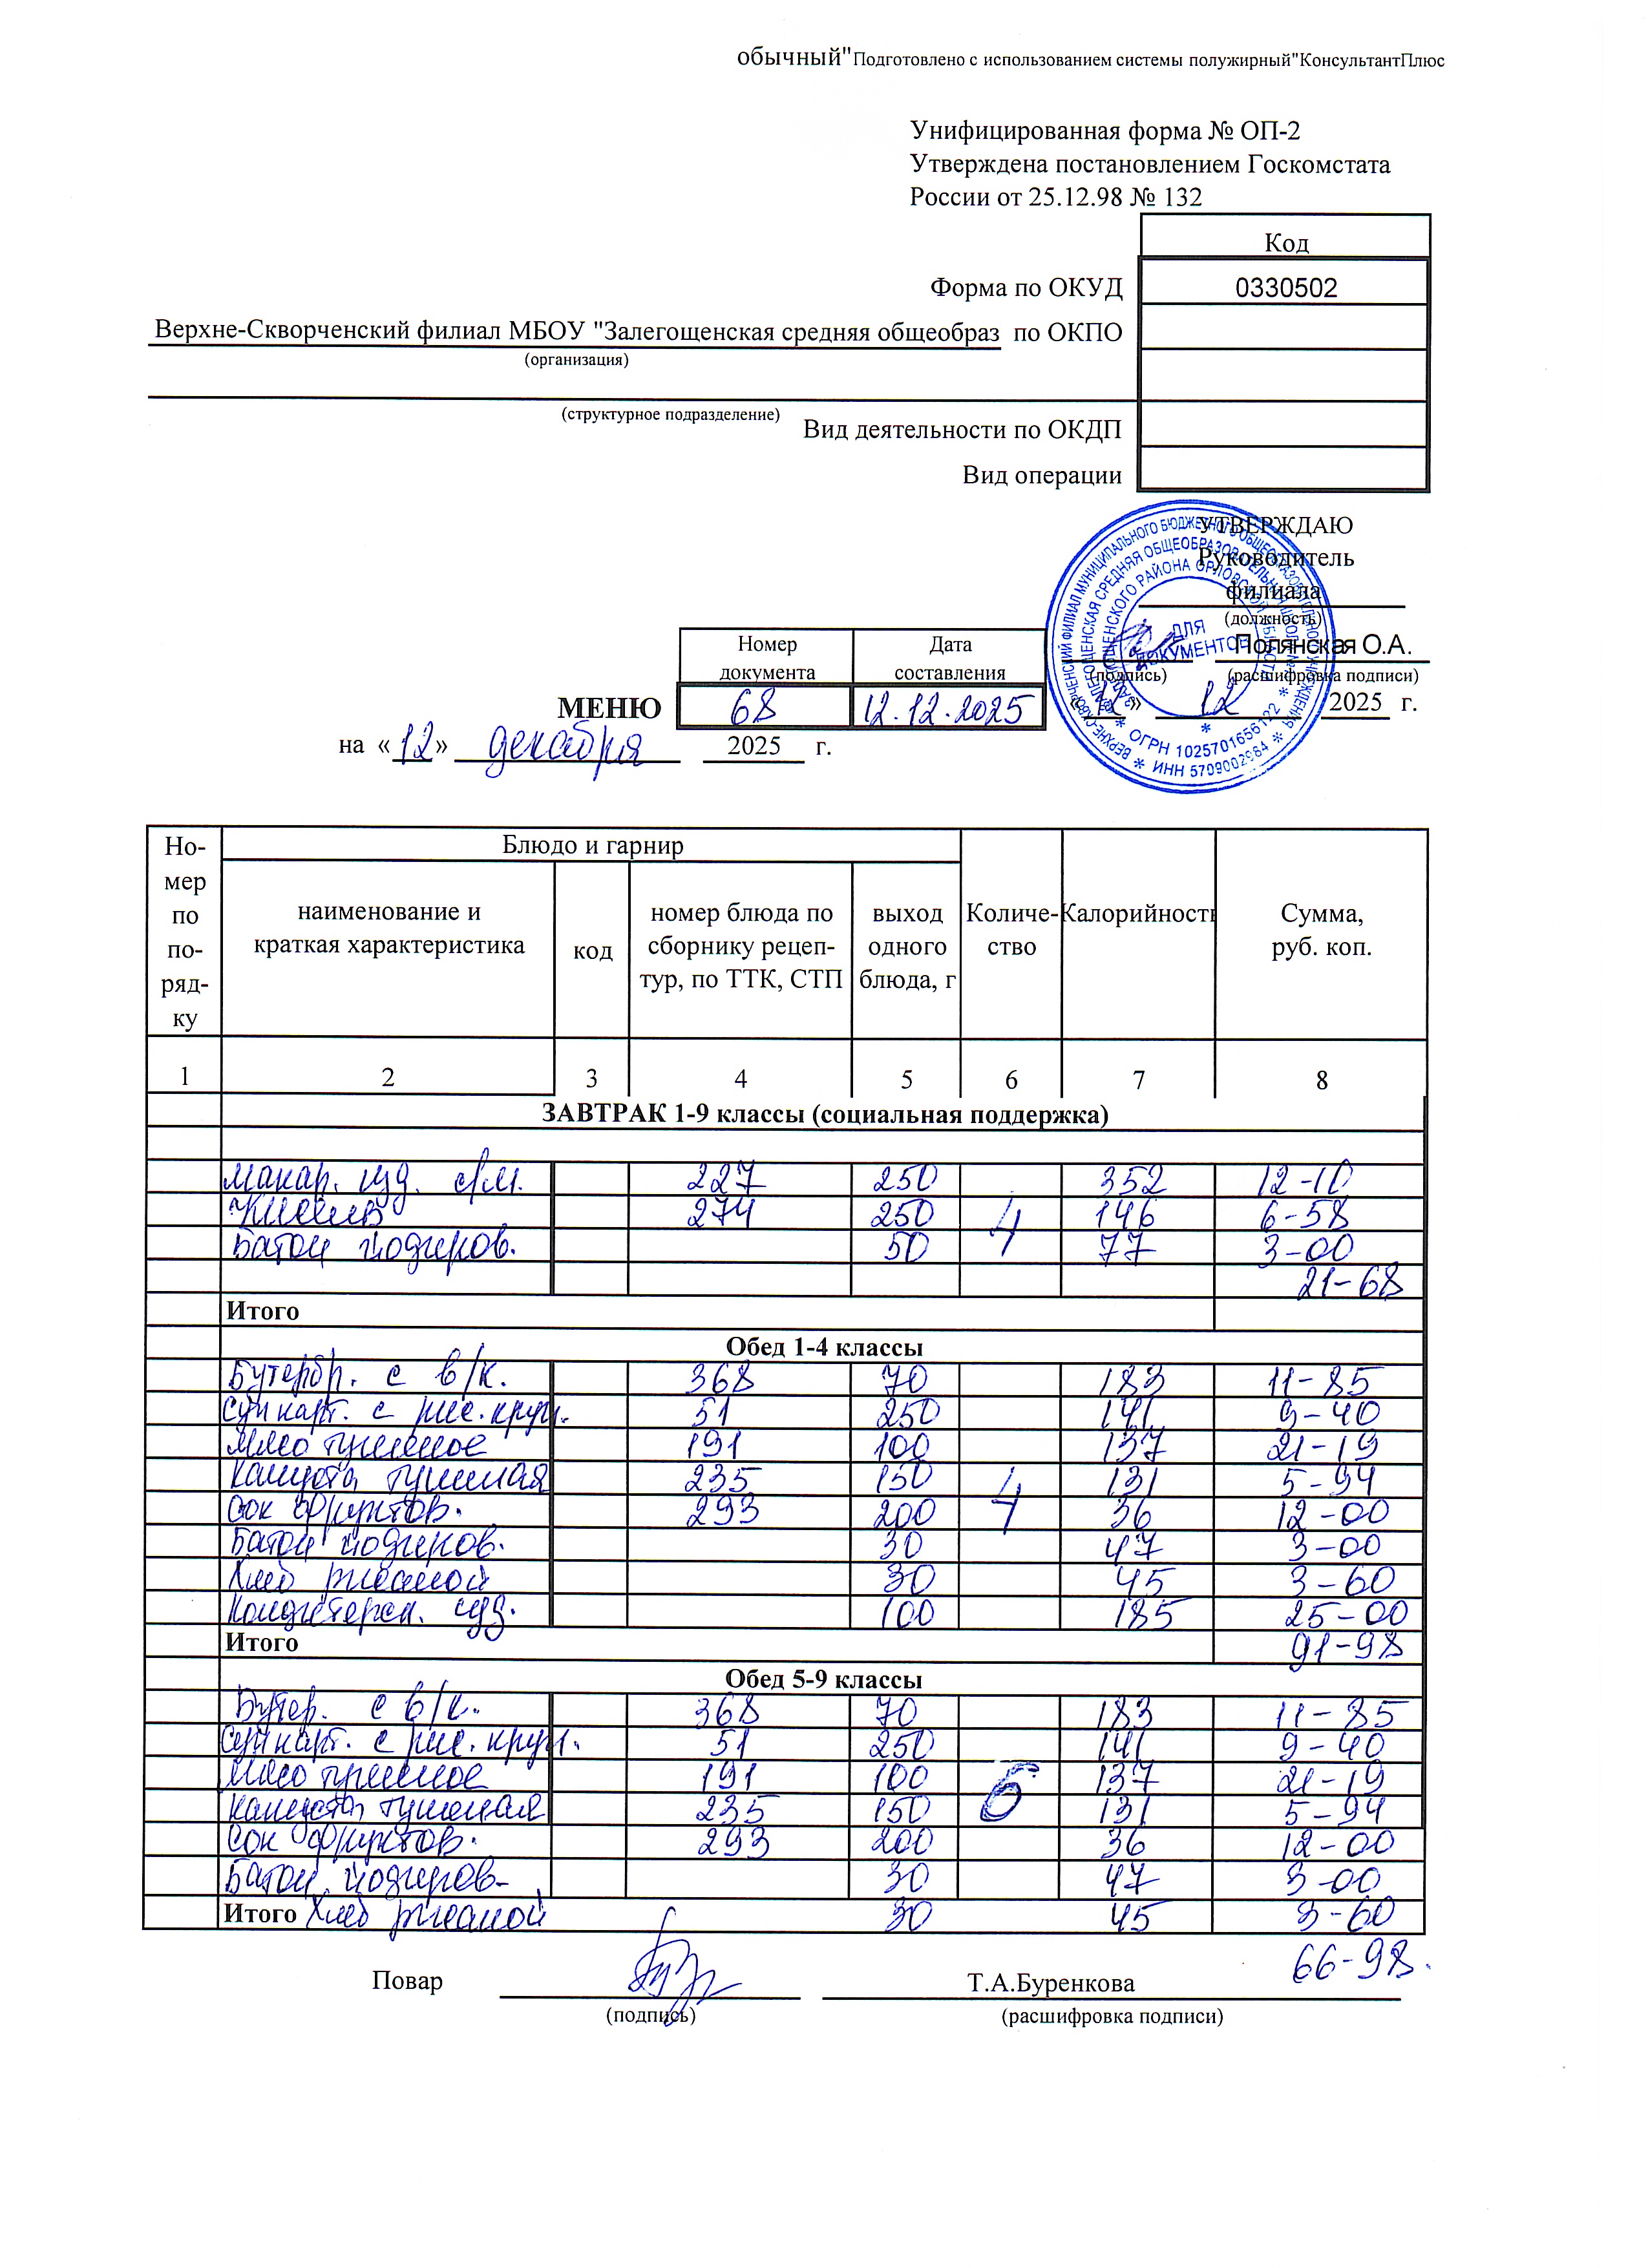 обычный"Подготовлено с использованием системы полужирный"КонсультантПлюс
Унифицированная форма № ОП-2
Утверждена постановлением Госкомстата
России от 25.12.98 № 132
Код
Форма по ОКУД 0330502
Верхне-Скворченский филиал МБОУ "Залегощенская средняя общеобраз по ОКПО
(организация)
(структурное подразделение)
Вид деятельности по ОКДП
Вид операции
УТВЕРЖДАЮ
Руководитель
филиала
(должность)
Полянская О.А.
(подпись) (расшифровка подписи)
« » 12 2025 г.
ДЛЯ
ДОКУМЕНТОВ
ОГРН 1025701656122
Номер документа Дата составления
МЕНЮ 68 12.12.2025
на «12» декабря 2025 г.
Но-мер по по-ряд-ку Блюдо и гарнир Количе-ство Калорийность Сумма, руб. коп.
наименование и краткая характеристика код номер блюда по сборнику рецеп-тур, по ТТК, СТП выход одного блюда, г
1 2 3 4 5 6 7 8
ЗАВТРАК 1-9 классы (социальная поддержка)
Макар. изд. с/м. 227 250 352 12-10
Кисель 274 250 4 146 6-58
Батон йодиров. 50 77 3-00
21-68
Итого
Обед 1-4 классы
Бутербр. с в/к. 368 70 183 11-85
Суп карт. с рис. круп. 51 250 141 9-40
Мясо тушеное 191 100 137 21-19
Капуста тушеная 235 150 4 131 5-94
Сок фруктов. 293 200 36 12-00
Батон йодиров. 30 47 3-00
Хлеб ржаной 30 45 3-60
Кондитерск. изд. 100 185 25-00
Итого 91-98
Обед 5-9 классы
Бутер. с в/к. 368 70 183 11-85
Суп карт. с рис. круп. 51 250 141 9-40
Мясо тушеное 191 100 6 137 21-19
Капуста тушеная 235 150 131 5-94
Сок фруктов. 293 200 36 12-00
Батон йодиров- 30 47 3-00
Итого Хлеб ржаной 30 45 3-60
66-98.
Повар Т.А.Буренкова
(подпись) (расшифровка подписи)